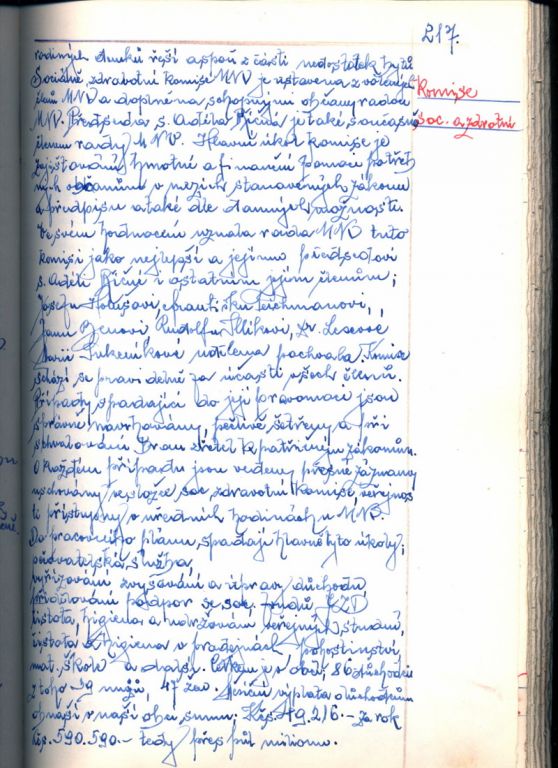 217.
rodinných domků řeší aspoň z části nedostatek bytů
Komise
soc. a zdrotní
Sociálně zdravotní komise MNV je ustavena z volených
členů MNV a doplněna schopnými občany radou
MNV. Předsedá s. Adéla Říčná, je také současně
členem rady MNV. Hlavní úkol komise je
zajišťování hmotné a finanční pomoci potřeb
ných občanům v mezích stanovených zákonem
a předpisu a také dle daných možností.
Ve svém hodnocení uznala rada MNV tuto
komisi jako nejlepší a jejímu předsedovi
s. Adéle Říčné i ostatním jejím členům;
Josefu, Františku Teichmanovi,
Janu, Rudolfu,
Marii udělena pochvala. Komise
schází se pravidelně za účasti všech členů.
Případy spadající do její pravomoci jsou
správně navrhovány, pečlivě šetřeny a při
schvalování brán zřetel k patřičným zákonům.
O každém případu jsou vedeny přesné záznamy
uschovány ve složce soc. zdravotní komise, veřejnos
ti přístupny v úředních hodinách u MNV.
Do pracovního plánu spadají hlavně tyto úkoly;
pečovatelská služba,
vyřizování zvyšování a úprav důchodů
přidělování podpor ze soc. fondů JZD
čistota, higiena a udržování veřejných studní,
čistota a higiena v prodejnách pohostinství,
mat. škole a další. Celkem je v obci 86 důchodců
z toho 39 mužů, 47 žen. Měsíční výplata důchodcům
obnáší v naší obci sumu; Kčs. 49.216.- za rok
Kčs. 590.590.- tedy přes půl milionu.